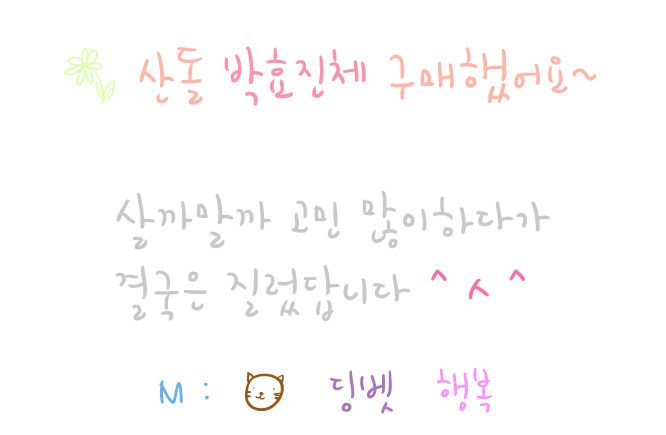 산돌 박효진체 구매했어요~
살까말까 고민 많이하다가
결국은 질렀답니다 ^ㅅ^
M : 딩벳 행복